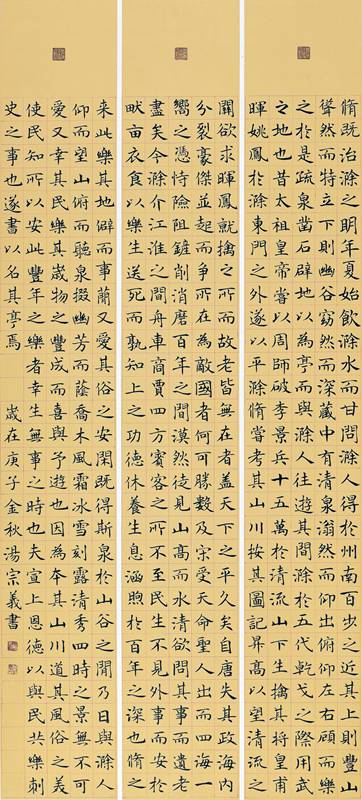 脩既治滁之明年夏始飲滁水而甘問諸滁人得於州南百步之近其上則豐山
聳然而特立下則幽谷窈然而深藏中有清泉滃然而仰出俯仰左右顧而樂
之於是疏泉鑿石闢地以為亭而與滁人往遊其間滁於五代乾戈之際用武
之地也昔太祖皇帝嘗以周師破李景兵十五萬於清流山下生擒其將皇甫
暉姚鳳於滁東門之外遂以平滁脩嘗考其山川按其圖記昇高以望清流之
關欲求暉鳳就擒之所而故老皆無在者蓋天下之平久矣自唐失其政海內
分裂豪傑並起而爭所在為敵國者何可勝數及宋受天命聖人出而四海一
嚮之憑恃險阻鏟削消磨百年之間漠然徒見山高而水清欲問其事而遺老
盡矣今滁介江淮之間舟車商賈四方賓客之所不至民生不見外事而安於
畎亩衣食以樂生送死而孰知上之功德休養生息涵煦於百年之深也脩之
來此樂其地僻而事簡又愛其俗之安閑既得斯泉於山谷之間乃日與滁人
仰而望山俯而聽泉掇幽芳而蔭喬木風霜冰雪刻露清秀四時之景無不可
愛又幸其民樂其歲物之豐成而喜與予遊也因為本其山川道其風俗之美
使民知所以安此豐年之樂者幸生無事之時也夫宣上恩德以與民共樂刺
史之事也遂書以名其亭焉 歲在庚子金秋湯宗義書